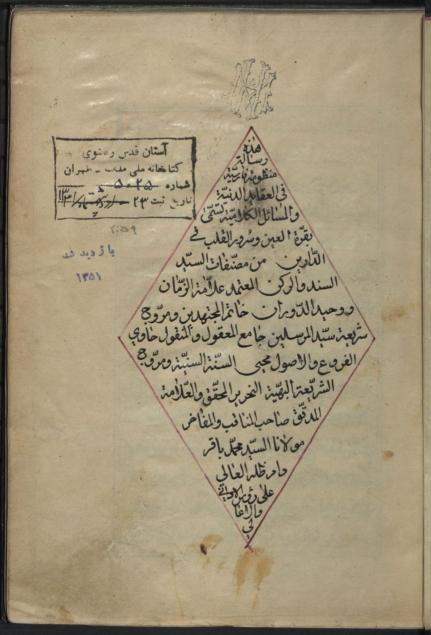 هذه
رسالة
منظومة فارسية
في العقايد الدينية
والمسائل الكلامية تسمى
بقرة العين وسرور القلب في
الدارين من مصنفات السيد
السند والركن المعتمد علامة الزمان
ووحيد الدوران خاتم المجتهدين ومروج
شريعة سيد المرسلين جامع المعقول والمنقول حاوي
الفروع والاصول محيي السنة السنية ومروج
الشريعة البهية النحرير المحقق والعلامة
المدقق صاحب المناقب والمفاخر
مولانا السيد محمد باقر
دام ظله العالي
على رؤس
لي
آستان قدس رضوی
کتابخانه ملی ملک - تهران
شماره ۵۰۲۵
تاریخ ثبت ۲۳
بازدید شد
۱۳۵۱